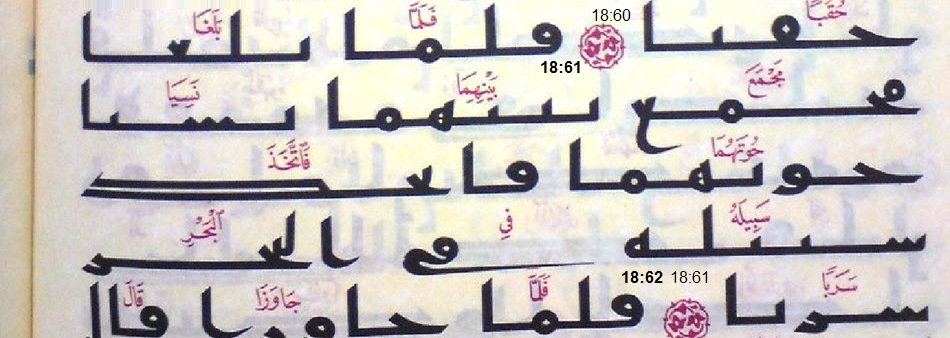 حُقُبًا فَلَمَّا بَلَغَا
حقبا 18:60 18:61 فلما بلغا
مَجْمَعَ بَيْنِهِمَا نَسِيَا
مجمع بينهما نسيا
حُوتَهُمَا فَٱتَّخَذَ
حوتهما فاتخذ
سَبِيلَهُۥ فِي ٱلْبَحْرِ
سبيله في البحر
18:61 18:62
سَرَبًا فَلَمَّا جَاوَزَا قَالَ
سربا فلما جاوزا قال